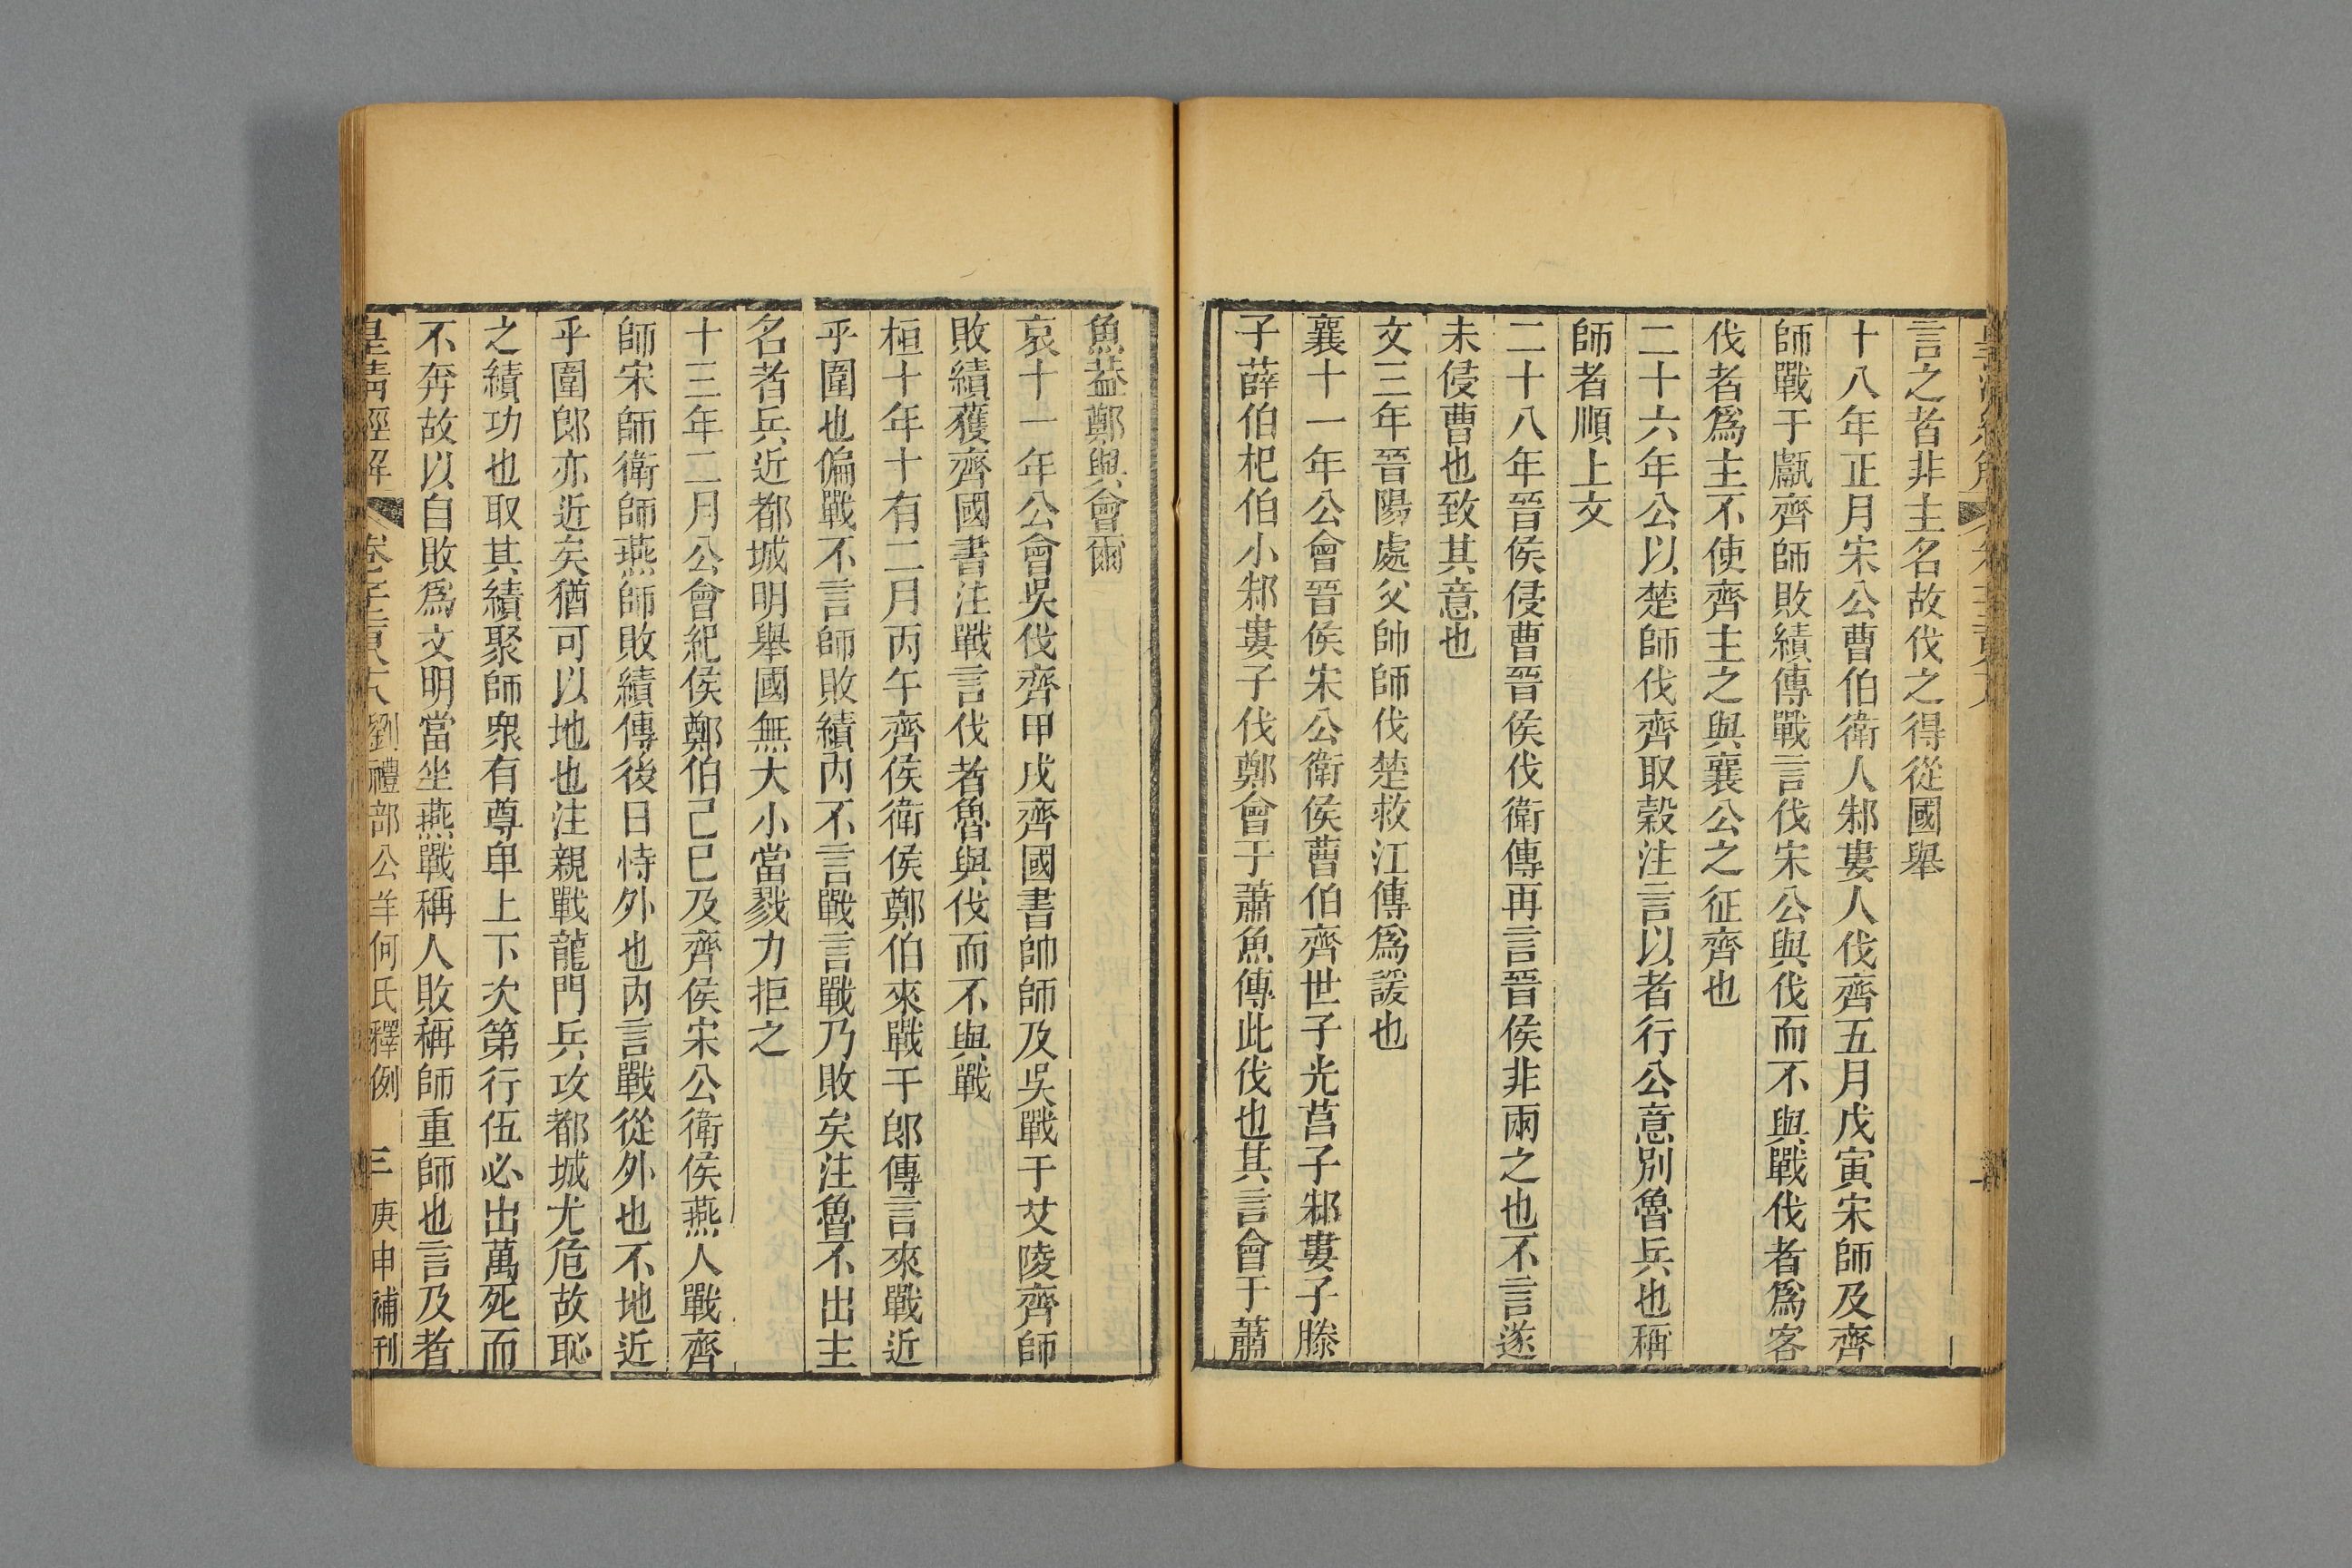 言之者非主名故伐之得從國舉
十八年正月宋公曹伯衛人邾婁人伐齊五月戊寅宋師及齊
師戰于甗齊師敗績傳戰言伐宋公與伐而不與戰伐者爲客
伐者爲主不使齊主之與襄公之征齊也
二十六年公以楚師伐齊取穀注言以者行公意別魯兵也稱
師者順上文
二十八年晉侯侵曹晉侯伐衛傳再言晉侯非兩之也不言遂
未侵曹也致其意也
文三年晉陽處父帥師伐楚救江傳爲諼也
襄十一年公會晉侯宋公衛侯曹伯齊世子光莒子邾婁子滕
子薛伯杞伯小邾婁子伐鄭會于蕭魚傳此伐也其言會于蕭
魚葢鄭與會爾
哀十一年公會吳伐齊甲戌齊國書帥師及吳戰于艾陵齊師
敗績獲齊國書注戰言伐者魯與伐而不與戰
桓十年十有二月丙午齊侯衛侯鄭伯來戰于郎傳言來戰近
乎圍也偏戰不言師敗績內不言戰言戰乃敗矣注魯不出主
名者兵近都城明舉國無大小當戮力拒之
十三年二月公會紀侯鄭伯己巳及齊侯宋公衛侯燕人戰齊
師宋師衛師燕師敗績傳後日恃外也內言戰從外也不地近
乎圍郎亦近矣猶可以地也注親戰龍門兵攻都城尤危故恥
之績功也取其績聚師衆有尊卑上下次第行伍必出萬死而
不奔故以自敗爲文明當坐燕戰稱人敗稱師重師也言及者
皇淸經解 卷 劉禮部公羊何氏釋例 三 庚申補刊